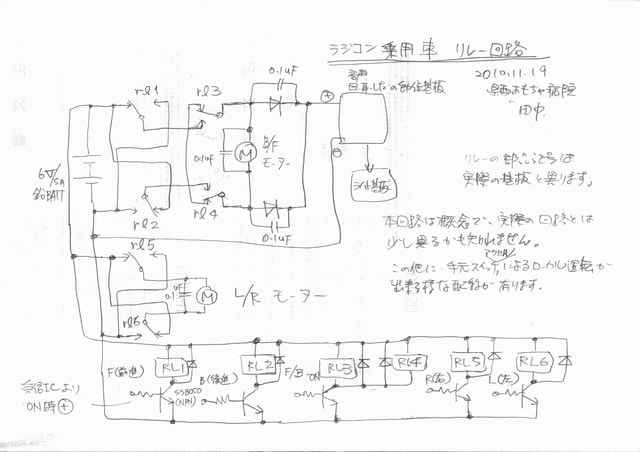 ラジコン 乗用車 リレー回路
2010.11.19
県西おもちゃ病院
田中
音声
回路
0.1uF
rl1
rl3
ライト基板
リレーの部品番号は
実際の基板と異ります。
6V/5A
鉛BATT
0.1uF
M
B/F
モーター
rl2
rl4
0.1uF
本回路は概念で、実際の回路とは
少し異るかも知れません。
アクセル
この他に、手元スイッチによるローカル運転が
出来る様な配線が有ります。
rl5
0.1uF
M
L/R モーター
rl6
RL1
RL2
RL3
RL4
RL5
RL6
F(前進)
B(後進)
F/B ON
R(右)
L(左)
SS8050
(NPN)
受信ICより
ON時⊕